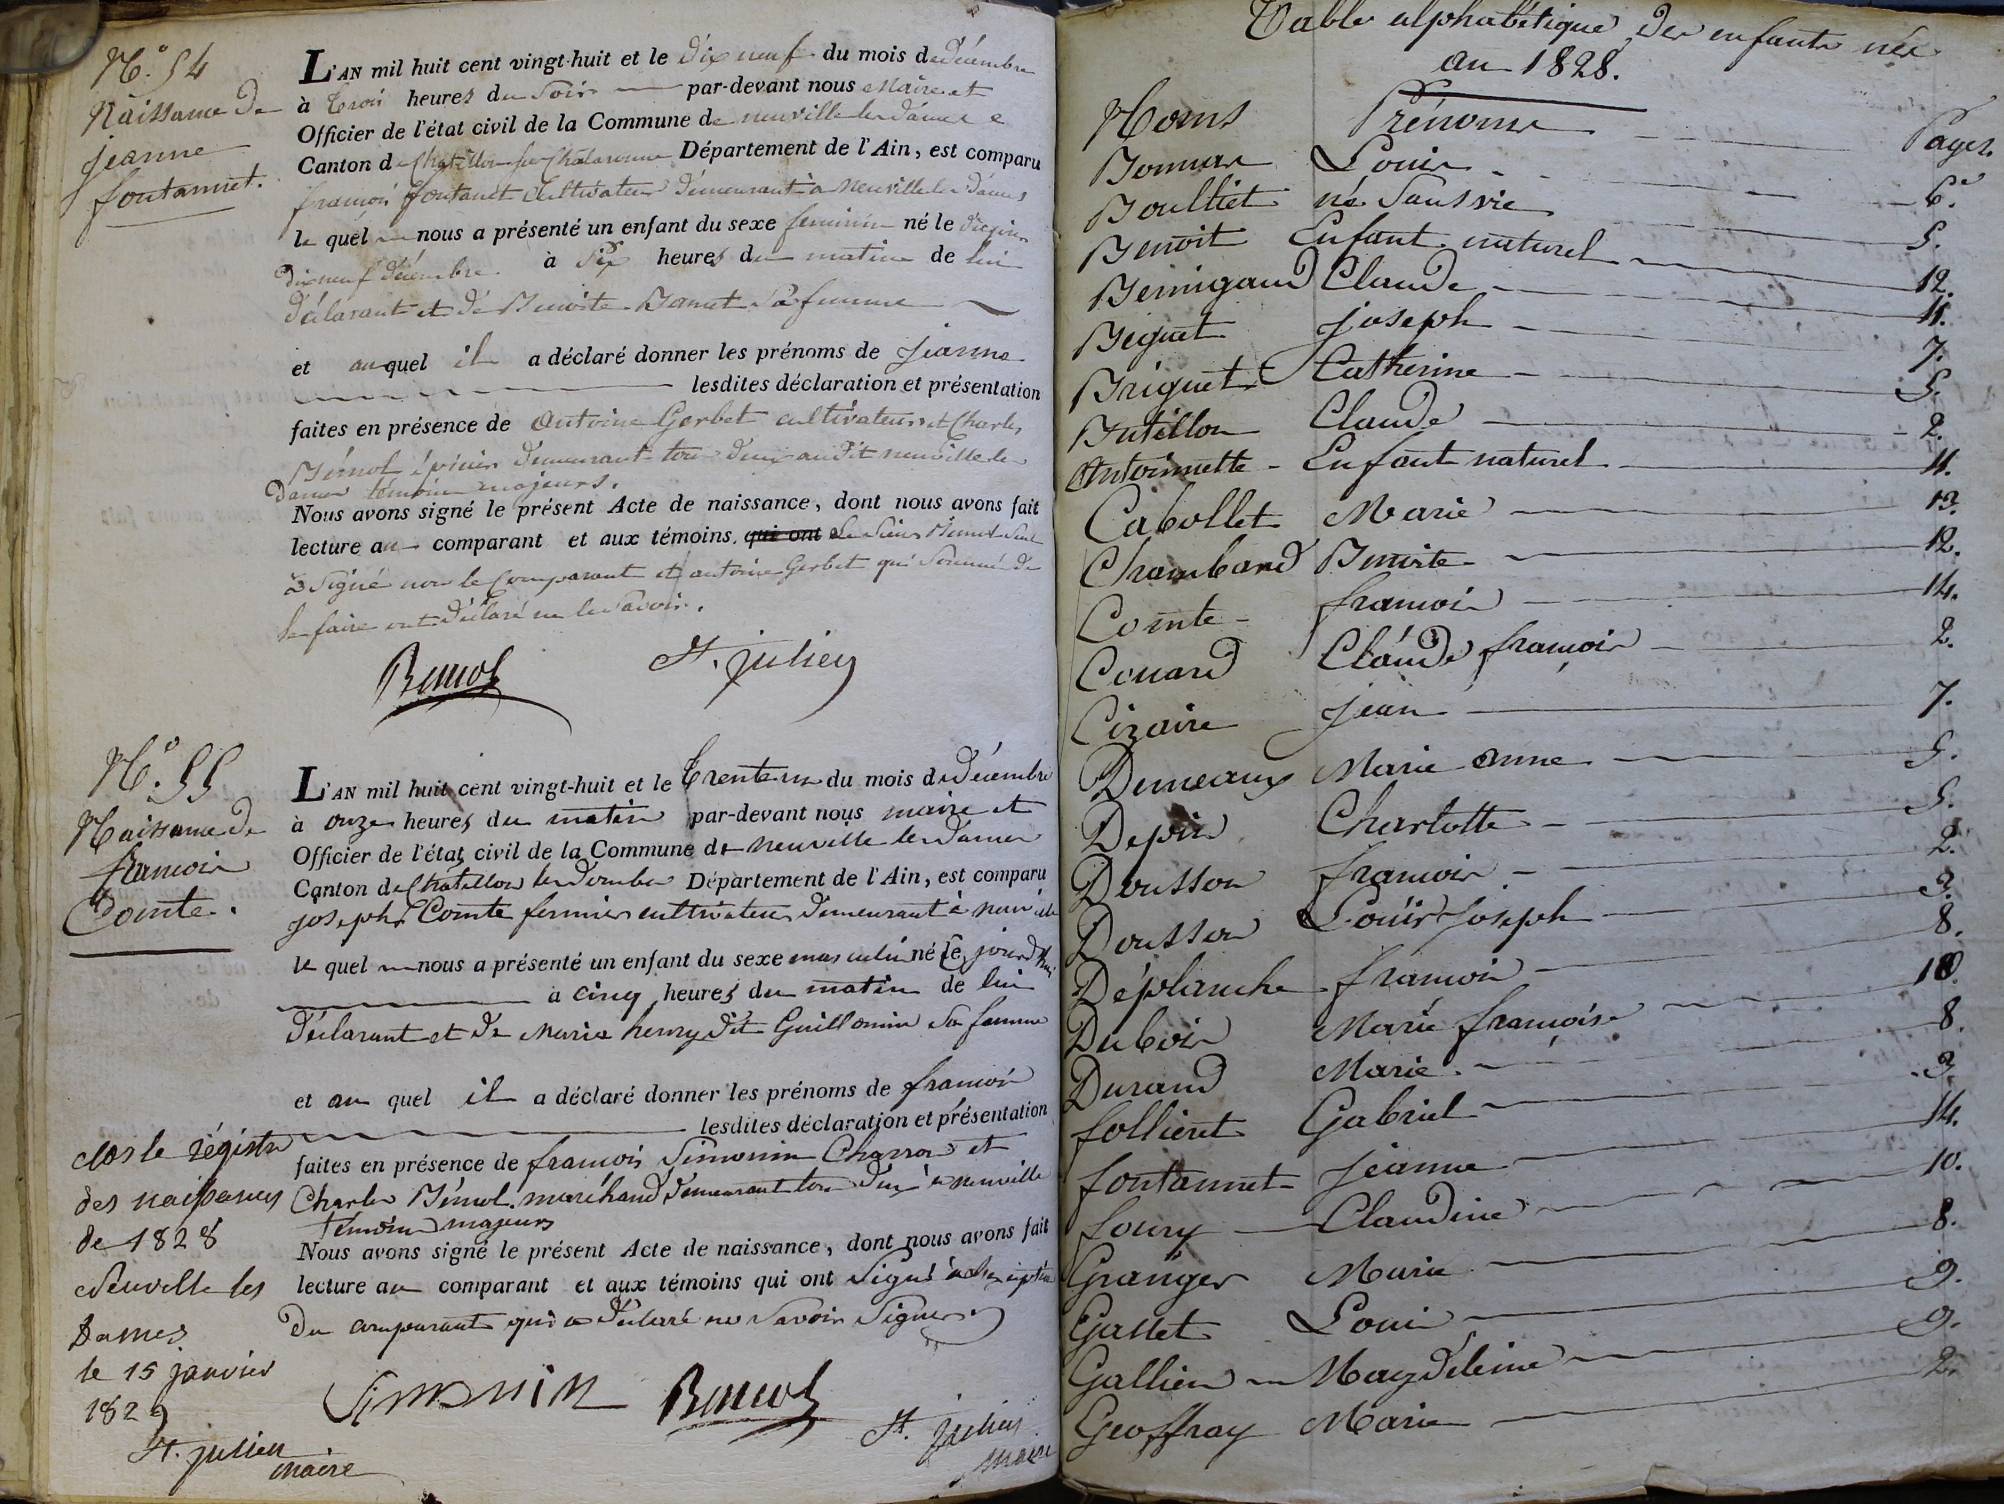 N.º 54
Naissance de
jeanne
fontannet.
L'AN mil huit cent vingt-huit et le dix neuf du mois de décembre
à trois heures du soir par-devant nous Maire et
Officier de l'état civil de la Commune de neuville les dames
Canton de Chatillon sur Chalaronne Département de l'Ain, est comparu
françois fontanet cultivateur demeurant à neuville les dames
le quel nous a présenté un enfant du sexe feminin né le
dix neuf décembre à six heures du matin de lui
déclarant et de Benoite sa femme
et auquel il a déclaré donner les prénoms de jeanne
lesdites déclaration et présentation
faites en présence de Antoine Gerbet cultivateur et Charles
Bémol épicier demeurant tous deux audit neuville les
Dames témoins majeurs.
Nous avons signé le présent Acte de naissance, dont nous avons fait
lecture au comparant et aux témoins, qui ont le sieur Bémol seul
a signé non le comparant et antoine Gerbet qui sommé de
le faire ont déclaré ne le savoir.
Bemol St. julien
N.º 55
Naissance de
françois
Comte.
L'AN mil huit cent vingt-huit et le trente un du mois de décembre
à onze heures du matin par-devant nous maire et
Officier de l'état civil de la Commune de neuville les dames
Canton de Châtillon les dombes Département de l'Ain, est comparu
joseph Comte fermier cultivateur demeurant à neuville
le quel nous a présenté un enfant du sexe masculin né ce jourd'hui
à cinq heures du matin de lui
déclarant et de Marie henry dit Guillomin sa femme
et au quel il a déclaré donner les prénoms de françois
lesdites déclaration et présentation
faites en présence de françois Simonin Charron et
Charles Bémol marchand demeurant tous deux à neuville
témoins majeurs
Nous avons signé le présent Acte de naissance, dont nous avons fait
lecture au comparant et aux témoins qui ont signé à l'exception
du comparant qui a déclaré ne savoir signer.
Simonin Bemol St. julien
maire
clos le régistre
des naissances
de 1828
Neuville les
Dames
le 15 janvier
1829
St. julien
maire
Table alphabétique des enfants nés
an 1828.
Noms Prénoms Pages
Louis 6.
Boulliet né sans vie 5.
Benoit Enfant naturel 12.
Bernigaud Claude 11.
Béguet joseph 7.
Briguet Catherine 5.
Butillon Claude 2.
Antoinette Enfant naturel 11.
Cabollet Marie 13.
Chambard Benoite 12.
Comte françois 14.
Couard Claude françois 2.
Cizaire jean 7.
Demeaux Marie anne 5.
Depin Charlotte 5.
Dousson françois 2.
Dousson Louis Joseph 3.
Déplanche françois 8.
Dubois Marie françoise 10.
Durand Marie 8.
follieret Gabriel 3.
fontannet jeanne 14.
foury Claudine 10.
Granger Marie 8.
Gallet Louis 9.
Gallien Magdeleine 9.
Geoffray Marie 2.